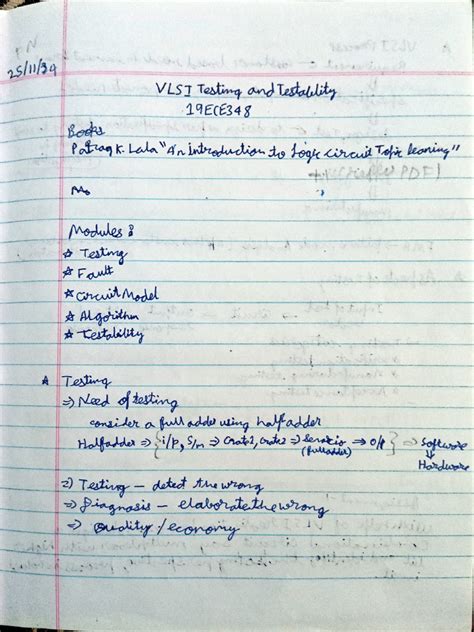 25/11/24
VLSI Testing and Testability
19ECE348
Books
Parag K. Lala "An introduction to Logic circuit Topic leaning"
Modules :
☆ Testing
☆ Fault
☆ Circuit Model
☆ Algorithm
☆ Testability
☆ Testing
⇒ Need of testing
consider a full adder using half adder
Half adder ⇒ { i/p, S/m ⇒ ⇒ (full adder) ⇒ o/p } ⇒ Software
⇓
Hardware
⇒ Testing - detect the wrong
⇒ Diagnosis - elaborate the wrong
⇒ Quality / economy